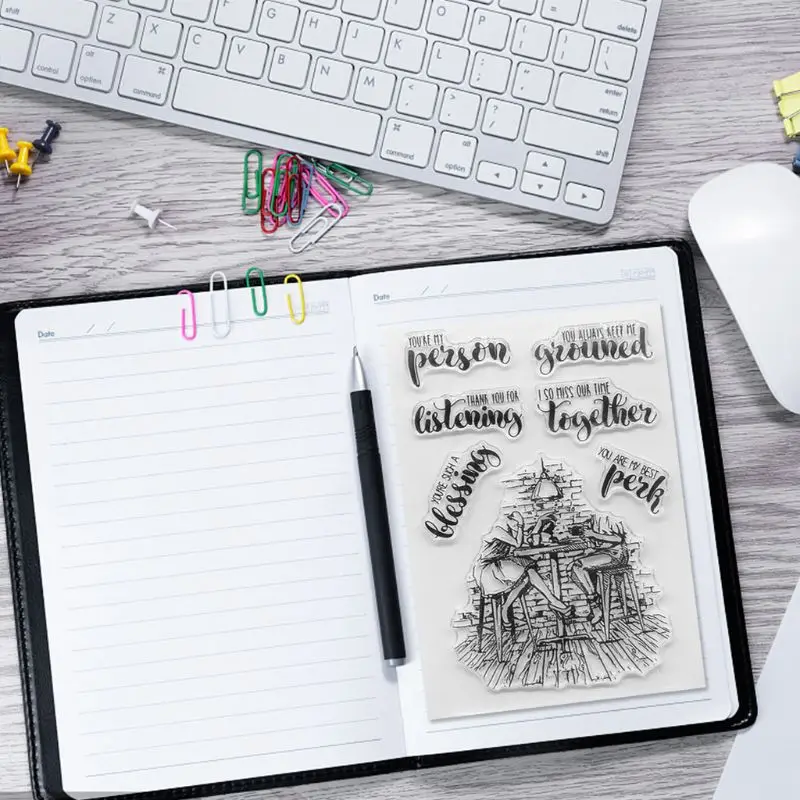 shift
Z
X
C
V
B
N
M
G
H
J
K
L
O
P
delete
control
alt
option
command
enter
return
shift
command
alt
option
Date / /
Date / /
YOU'RE MY
person
YOU ALWAYS KEEP ME
grouned
THANK YOU FOR
listening
I SO MISS OUR TIME
together
YOU'RE SUCH A
blessing
YOU ARE MY BEST
perk